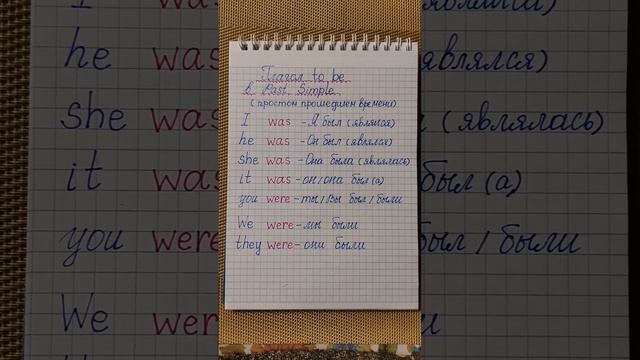 Глагол to be
в Past Simple
(простом прошедшем времени)
I was - Я был (являлся)
he was - Он был (являлся)
she was - Она была (являлась)
it was - он/она был(а)
you were - ты/Вы был/были
We were - мы были
they were - они были